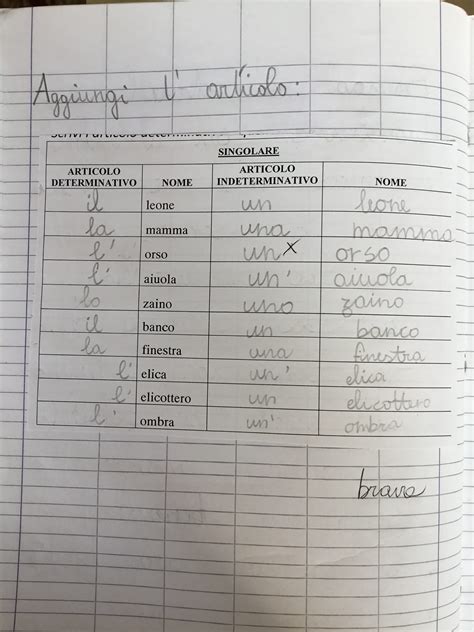 Aggiungi l' articolo:
SINGOLARE
ARTICOLO DETERMINATIVO NOME ARTICOLO INDETERMINATIVO NOME
il leone un leone
la mamma una mamma
l' orso un x orso
l' aiuola un' aiuola
lo zaino uno zaino
il banco un banco
la finestra una finestra
l' elica un' elica
l' elicottero un elicottero
l' ombra un' ombra
brava